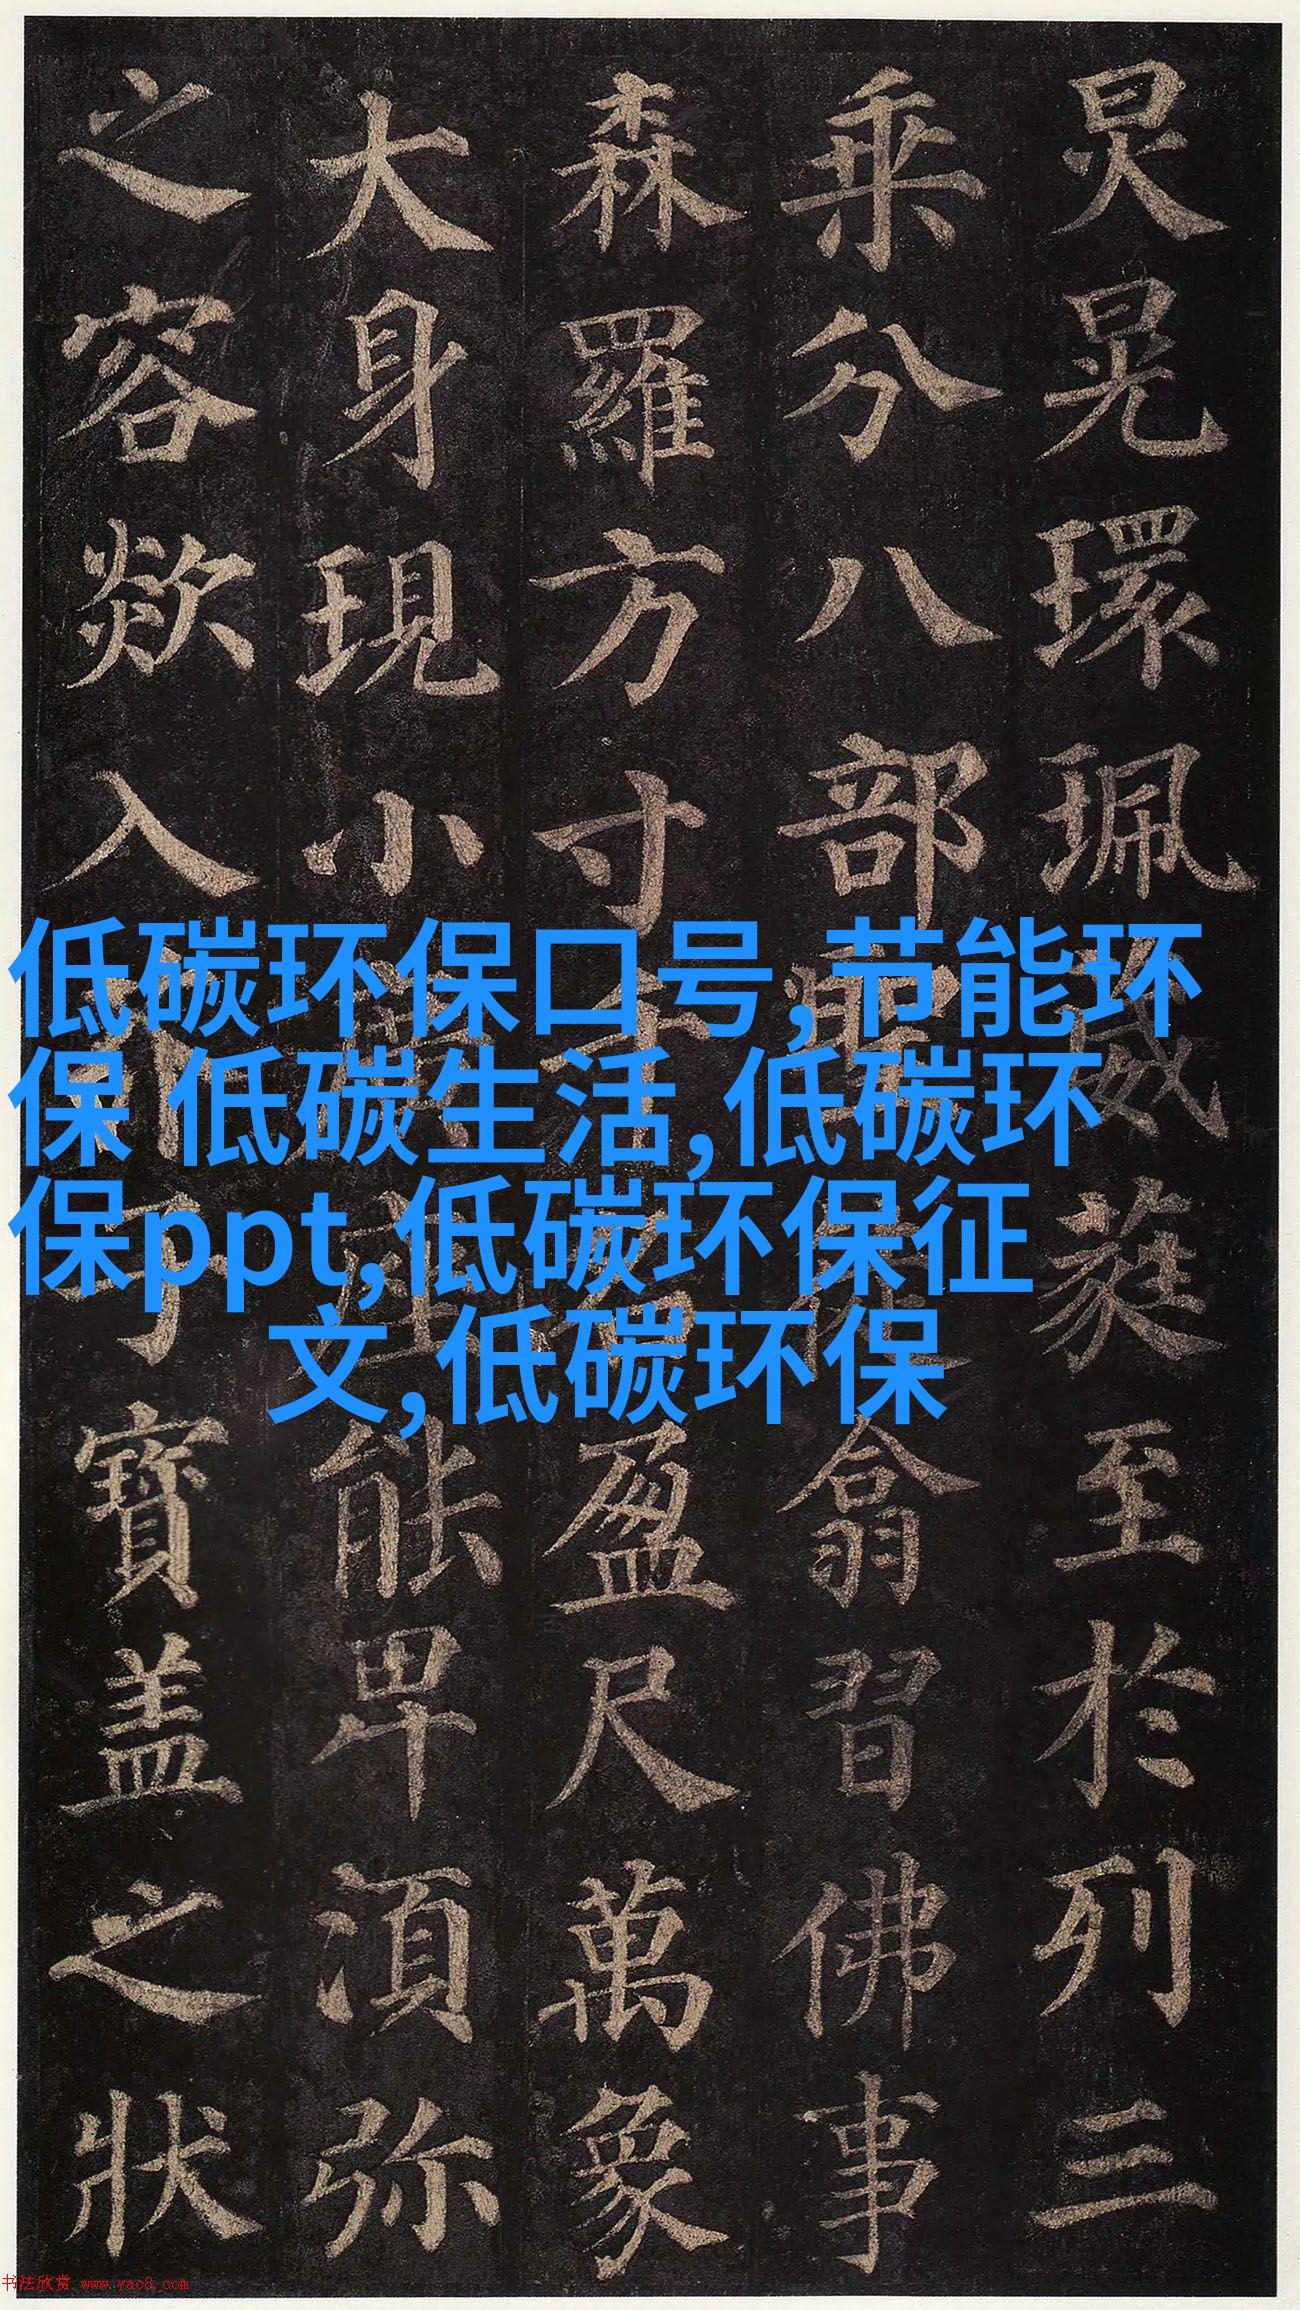 炅晃環珮葳蕤至於列三
乘分八部聖翕習佛事
森羅方寸盈尺萬象
大身現小能卑湏弥
之容欻入寶盖之狀
低碳环保口号,节能环
保 低碳生活,低碳环
保ppt,低碳环保征
文,低碳环保
书法欣赏 www.yac8.com